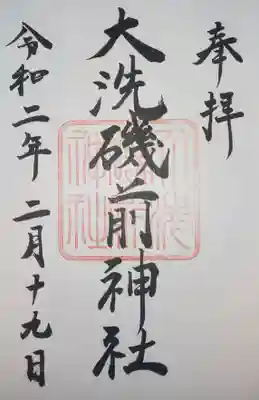 奉拝
大洗磯前神社
令和二年 二月十九日